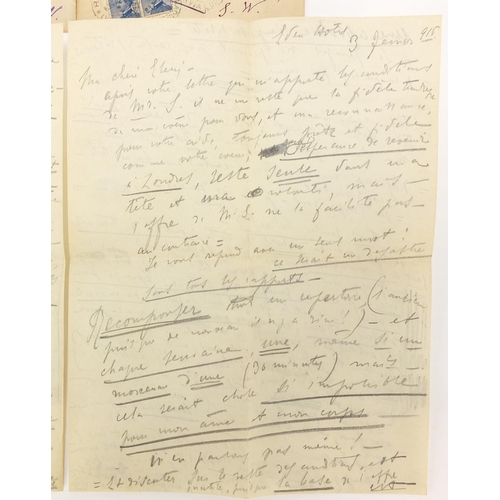 S. W.
Eden Hotel
3 février 915
Ma chère Elen,
après votre lettre qui m'apporte les conditions
de Mr. S. il ne me reste que la fidèle tendresse
de mon cœur pour vous, et ma reconnaissance,
pour votre aide, toujours prête et fidèle
comme votre cœur; l'espérance de revenir
à Londres, reste seule dans ma
tête et ma volonté, mais
l'offre de Mr. S. ne la facilite pas
au contraire =
Je vous répond avec un seul mot!
ce serait un désastre
sous tous les rapports -
Recomposer tout un repertoire (l'ancien
puisque de morceau il n'y a rien!) - et
chaque semaine, une, même si un
morceau d'une (30 minutes) mais -
cela serait chose si impossible
pour mon âme et mon corps -
N'en parlons pas même! -
= Et discuter sur le reste des conditions, est
inutile, puisque la base de l'offre
est -